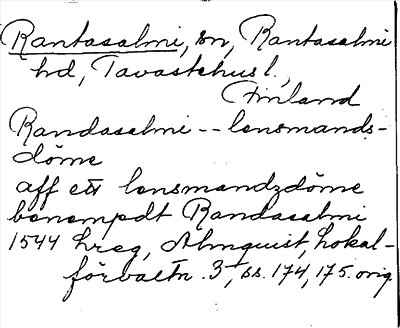 Rantasalmi, sn, Rantasalmi
hd, Tavastehus l.,
Finland
Randasalmi -- lensmands-
döme
aff ett lensmandzdöme
benempdt Randasalmi
1544 hreg, Almquist, Lokal-
förvaltn. 3, ss. 174, 175. orig.